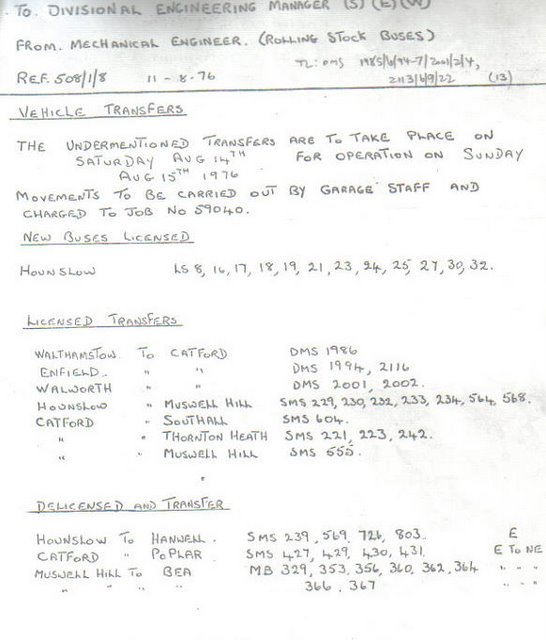 TO. DIVISIONAL ENGINEERING MANAGER (S) (E) (W)
FROM. MECHANICAL ENGINEER. (ROLLING STOCK BUSES)
TL: DMS 1985/6/94-7/2001/2/4,
REF. 508/1/8 11-8.76 2113/6/9/22 (13)
VEHICLE TRANSFERS
THE UNDERMENTIONED TRANSFERS ARE TO TAKE PLACE ON
SATURDAY AUG 14TH FOR OPERATION ON SUNDAY
AUG 15TH 1976
MOVEMENTS TO BE CARRIED OUT BY GARAGE STAFF AND
CHARGED TO JOB NO 59040.
NEW BUSES LICENSED
HOUNSLOW LS 8, 16, 17, 18, 19, 21, 23, 24, 25, 27, 30, 32.
LICENSED TRANSFERS
WALTHAMSTOW TO CATFORD DMS 1986
ENFIELD.. " " DMS 1994, 2116
WALWORTH " " DMS 2001, 2002.
HOUNSLOW " MUSWELL HILL SMS 229, 230, 232, 233, 234, 564, 568.
CATFORD " SOUTHALL SMS 604.
" " THORNTON HEATH SMS 221, 223, 242.
" " MUSWELL HILL SMS 555.
"
DELICENSED AND TRANSFER
HOUNSLOW TO HANWELL. SMS 239, 569, 726, 803. E
CATFORD " POPLAR SMS 427, 429, 430, 431. E TO NE
MUSWELL HILL TO BEA MB 329, 353, 356, 360, 362, 364 " " "
" " " " 366. 367 " " "